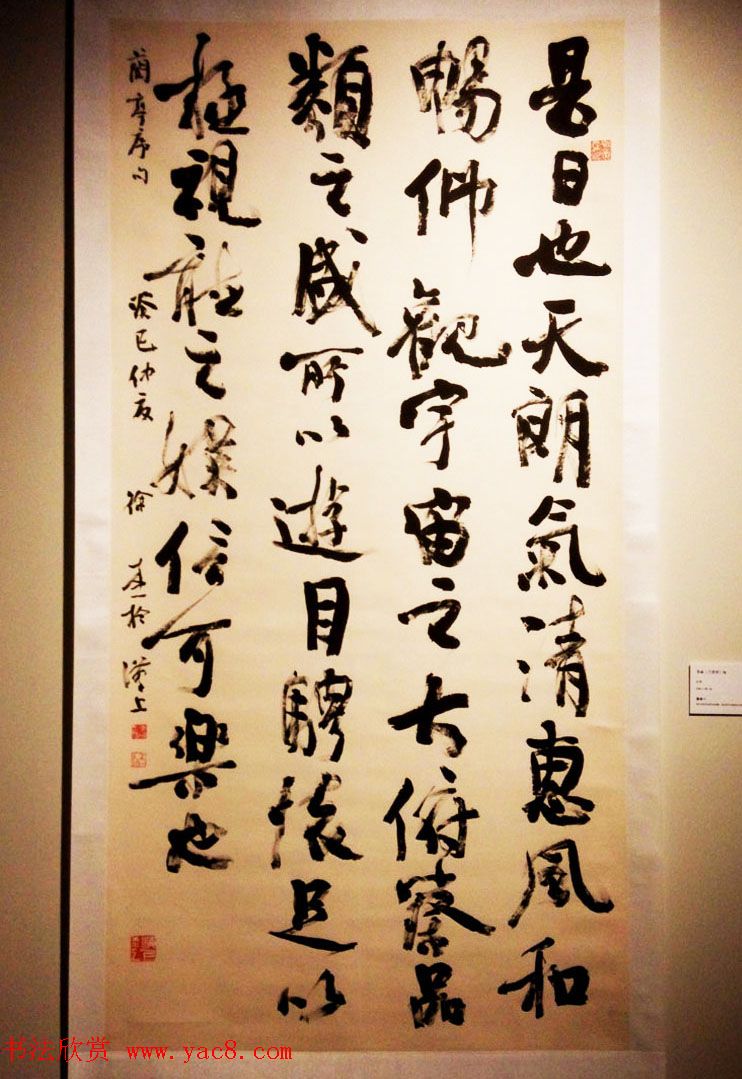 是日也天朗氣清惠風和
暢仰觀宇宙之大俯察品
類之盛所以遊目騁懷足以
極視聽之娱信可樂也
蘭亭序句 癸巳仲夏 徐本一於漢上
书法欣赏 www.yac8.com